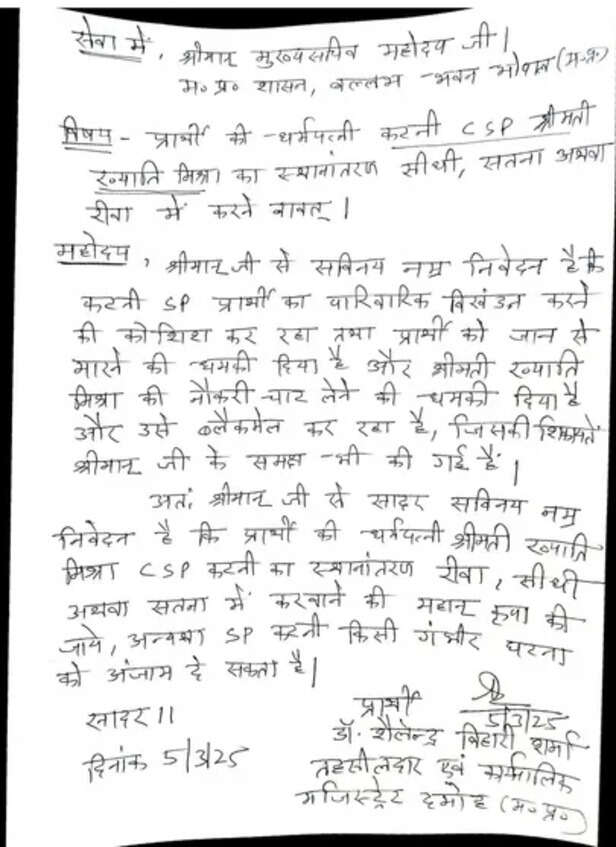 सेवा में, श्रीमान् मुख्यसचिव महोदय जी।
म॰ प्र॰ शासन, वल्लभ भवन भोपाल (म॰प्र॰)
विषय - प्रार्थी की धर्मपत्नी कटनी CSP श्रीमती
ख्याति मिश्रा का स्थानांतरण सीधी, सतना अथवा
रीवा में करने बावत्।
महोदय, श्रीमान् जी से सविनय नम्र निवेदन है कि
कटनी SP प्रार्थी का पारिवारिक विखंडन करने
की कोशिश कर रहा तथा प्रार्थी को जान से
मारने की धमकी दिया है और श्रीमती ख्याति
मिश्रा की नौकरी चाट लेने की धमकी दिया है
और उसे ब्लैकमेल कर रहा है, जिसकी शिकायतें
श्रीमान् जी के समक्ष भी की गई हैं।
अतः श्रीमान् जी से सादर सविनय नम्र
निवेदन है कि प्रार्थी की धर्मपत्नी श्रीमती ख्याति
मिश्रा CSP कटनी का स्थानांतरण रीवा, सीधी
अथवा सतना में करवाने की महान् कृपा की
जाये, अन्यथा SP कटनी किसी गंभीर घटना
को अंजाम दे सकता है।
सादर ॥
दिनांक 5/3/25
प्रार्थी
5/3/25
डॉ. शैलेन्द्र बिहारी शर्मा
तहसीलदार एवं कार्यपालिक
मजिस्ट्रेट दमोह (म॰ प्र॰)